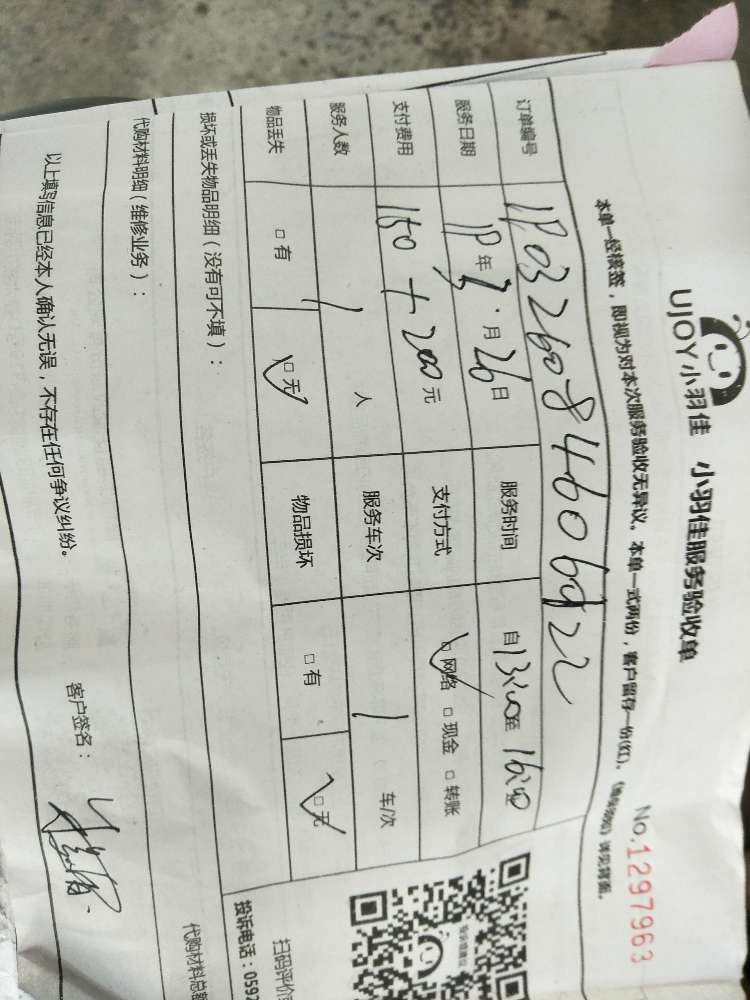 UJOY小羽佳 小羽佳服务验收单
No.1297963
本单一经核签，即视为对本次服务验收无异议。本单一式两份，客户留存一份(红)。
订单编号
服务日期 19年3月26日 服务时间 自13:00至16:00
支付费用 150+200元 支付方式 ☑网络 □现金 □转账
服务人数 1人 服务车次 1车/次
物品丢失 □有 ☑无 物品损坏 □有 ☑无
损坏或丢失物品明细（没有可不填）：
扫码评价
投诉电话：0592
代购材料明细（维修业务）：
代购材料总
以上填写信息已经本人确认无误，不存在任何争议纠纷。
客户签名：